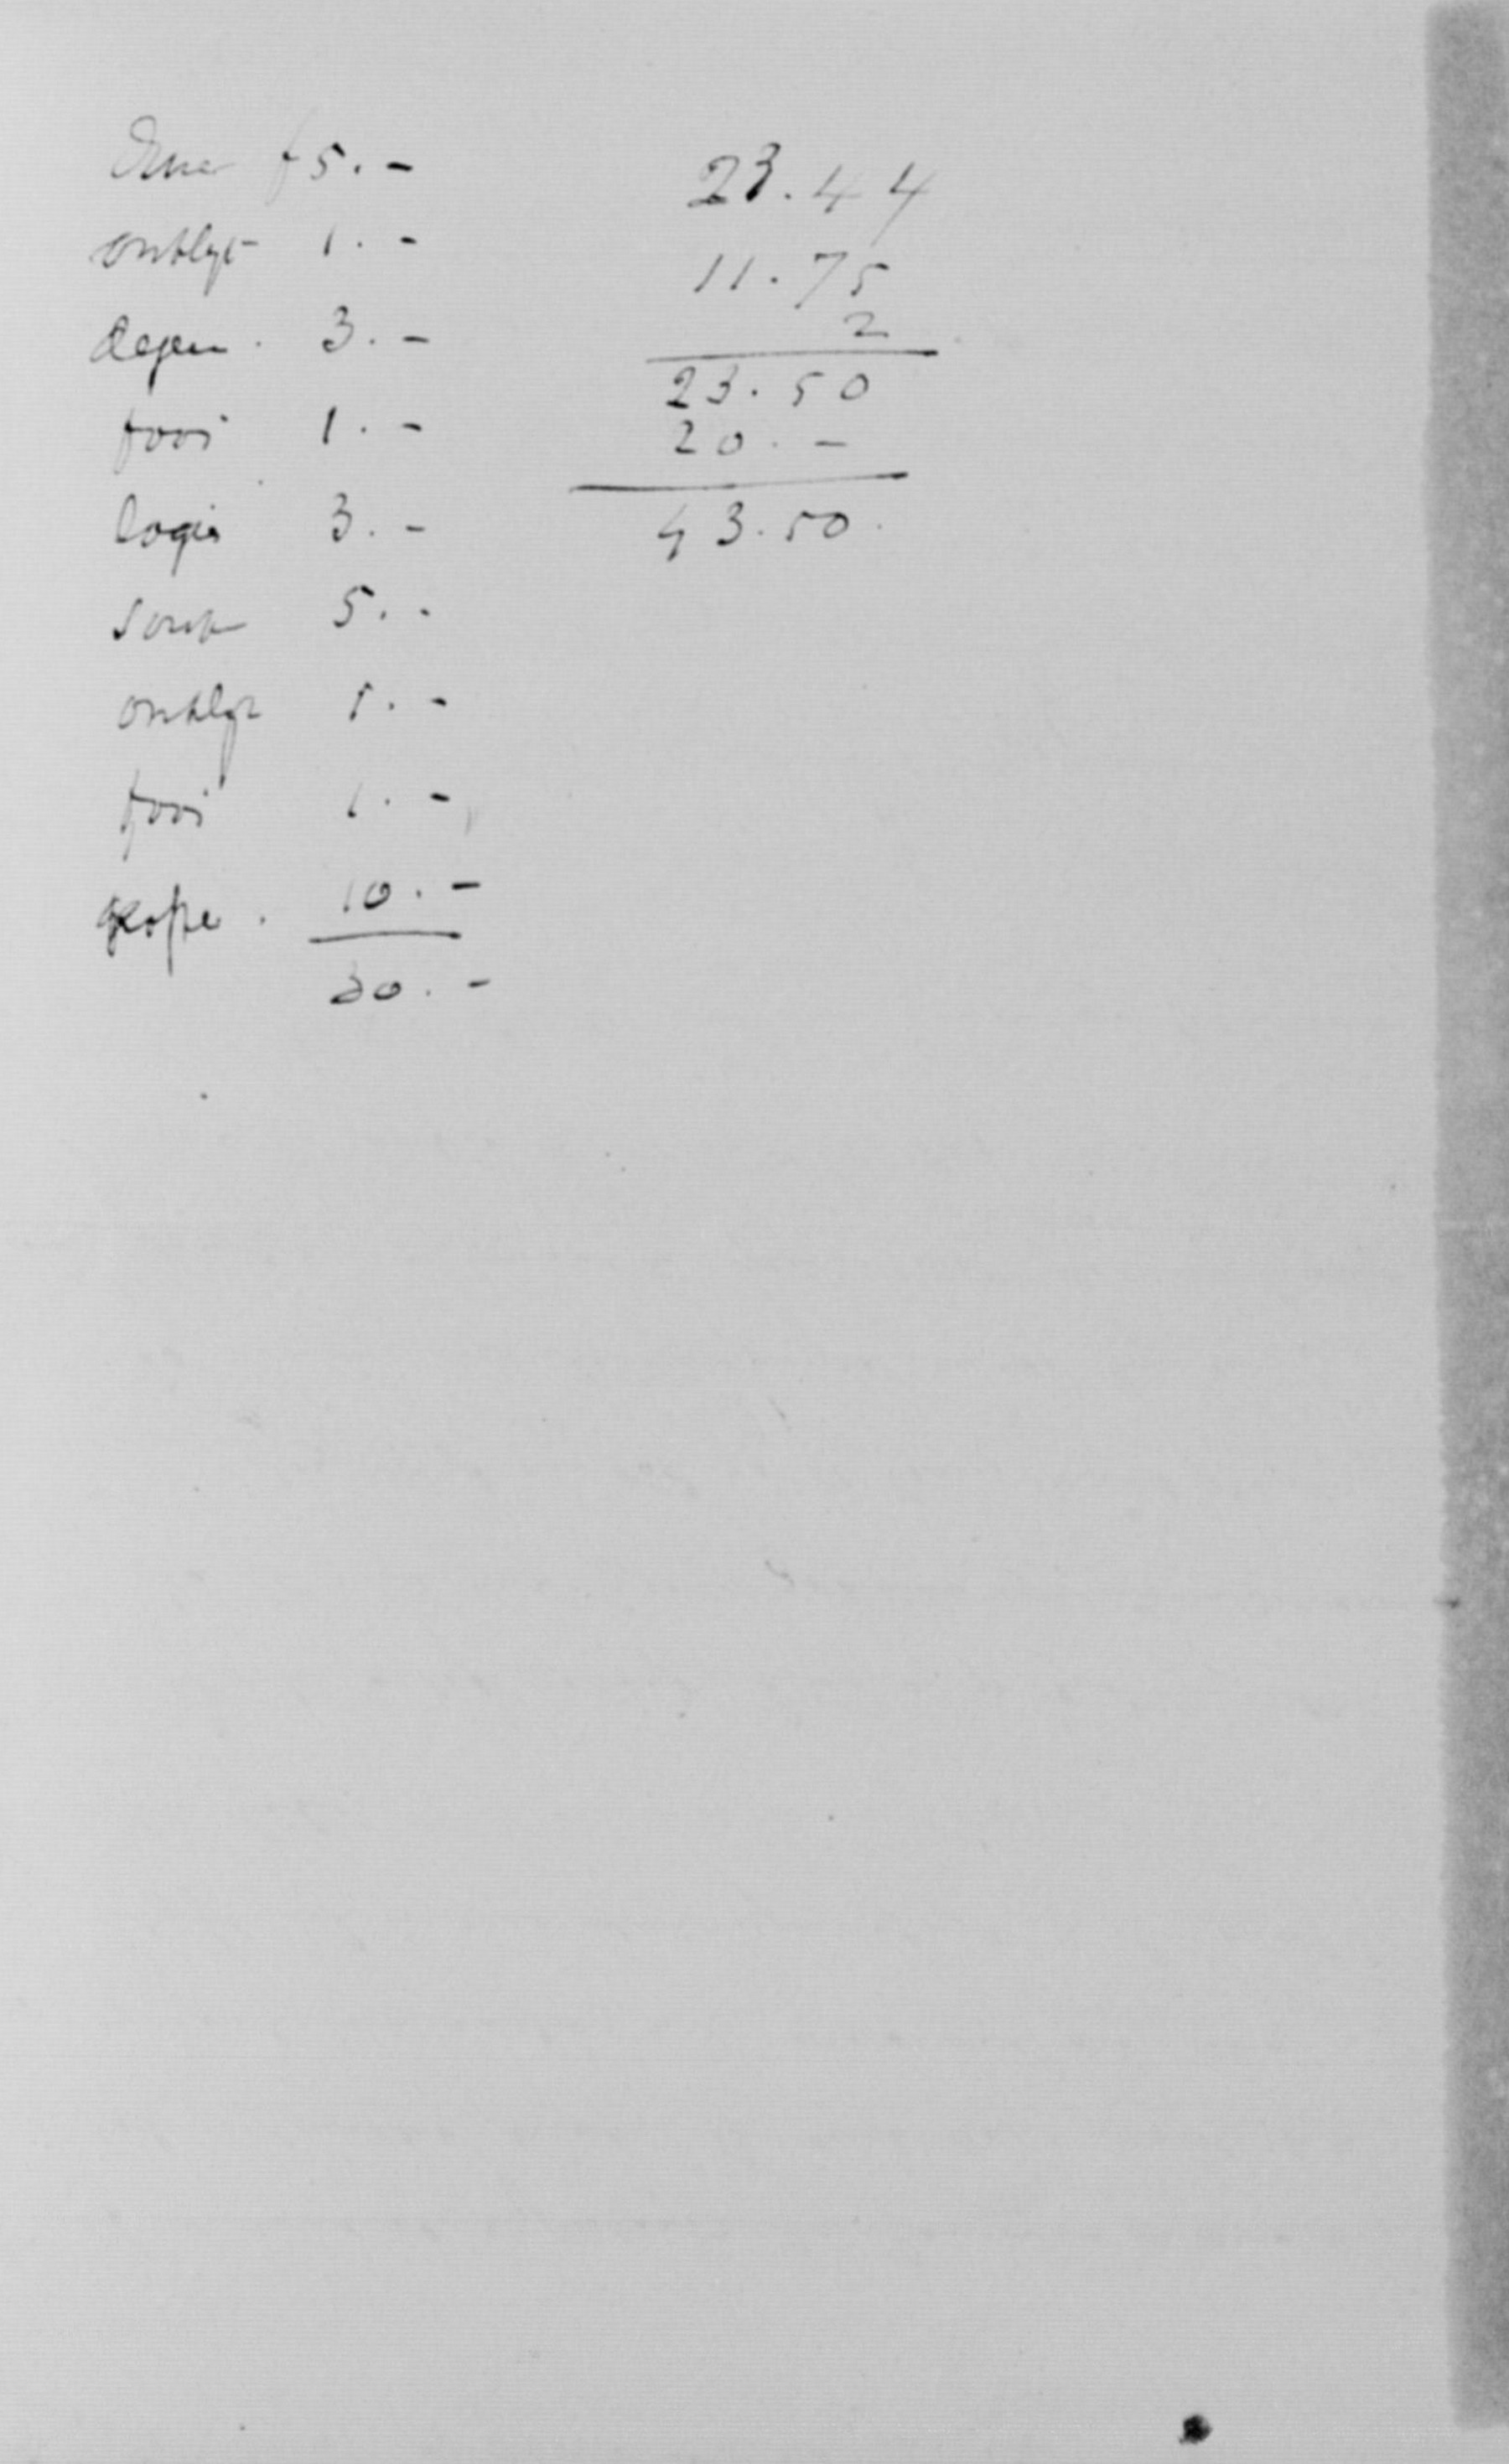 Diner f 5.-
ontbijt 1.-
dejeu. 3.-
fooi 1.-
logis 3.-
5.-
ontbijt 1.-
fooi 1.-
10.-
30.-
23.44
11.75
2
23.50
20.-
43.50